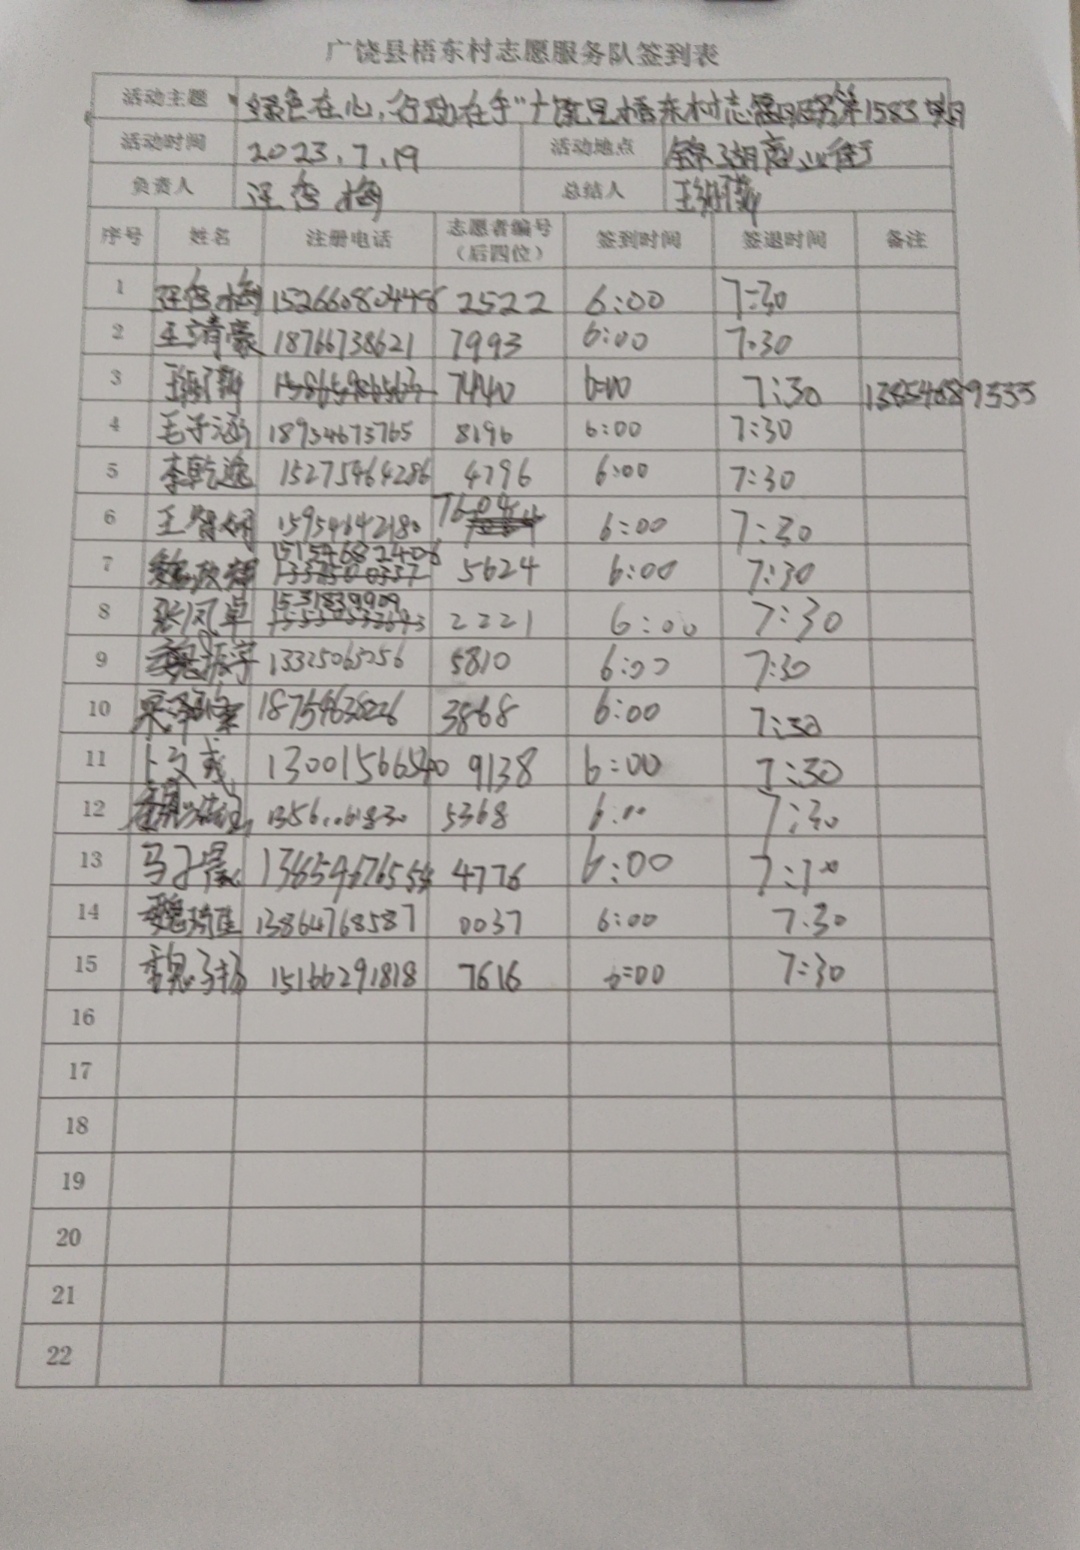 广饶县梧东村志愿服务队签到表
活动主题 "绿色在心,行动在手"广饶县梧东村志愿服务第1583期
活动时间 2023.7.19 活动地点 锦湖商业街
负责人 汪秀梅 总结人
序号 姓名 注册电话 志愿者编号(后四位) 签到时间 签退时间 备注
1 汪秀梅 2522 6:00 7:30
2 王靖豪 18766738621 7993 6:00 7:30
3 7440 6:00 7:30
4 毛子涵 18954673765 8196 6:00 7:30
5 李乾逸 15275464286 4796 6:00 7:30
6 15954642180 7604 6:00 7:30
7 15154682406 5624 6:00 7:30
8 张凤卓 2221 6:00 7:30
9 魏振宇 13325065256 5810 6:00 7:30
10 3868 6:00 7:30
11 卜文彧 9138 6:00 7:30
12 5368 6:00 7:30
13 马子晨 4776 6:00
14 13864768587 0037 6:00 7:30
15 魏子扬 15166291818 7616 6:00 7:30
16
17
18
19
20
21
22